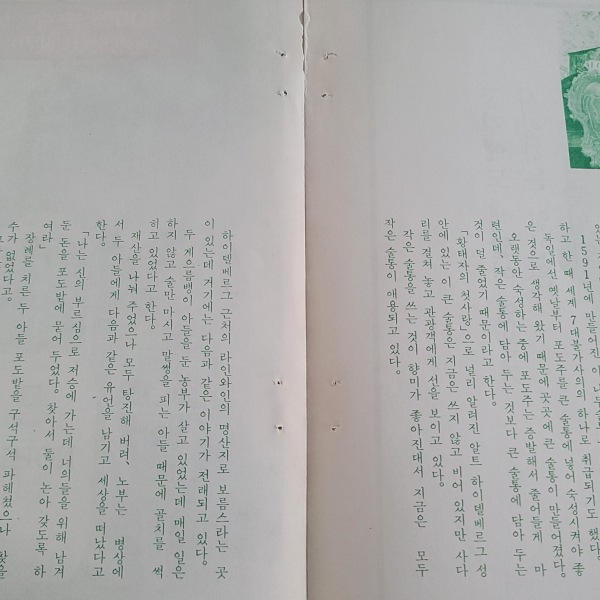 1591년에 만들어진 이 나무술
하고 한 때 세계 7대불가사의의 하나로 취급되기도 했다.
독일에선 옛날부터 포도주를 큰 술통에 넣어 숙성시켜야 좋
은 것으로 생각해 왔기 때문에 곳곳에 큰 술통이 만들어졌다.
오랫동안 숙성하는 중에 포도주는 증발해서 줄어들게 마
련인데, 작은 술통에 담아 두는 것보다 큰 술통에 담아 두는
것이 덜 줄었기 때문이라고 한다.
「황태자의 첫사랑」으로 널리 알려진 알트 하이델베르그 성
안에 있는 이 큰 술통은 지금은 쓰지 않고 비어 있지만 사다
리를 걸쳐 놓고 관광객에게 선을 보이고 있다.
작은 술통을 쓰는 것이 향미가 좋아진대서 지금은 모두
작은 술통이 애용되고 있다.
하이델베르그 근처의 라인와인의 명산지로 보름스라는 곳
이 있는데 거기에는 다음과 같은 이야기가 전래되고 있다.
두 게으름뱅이 아들을 둔 농부가 살고 있었는데 매일 일은
하지 않고 술만 마시고 말썽을 피는 아들 때문에 골치를 썩
히고 있었다고 한다.
재산을 나눠 주었으나 모두 탕진해 버려, 노부는 병상에
서 두 아들에게 다음과 같은 유언을 남기고 세상을 떠났다고
한다.
「나는 신의 부르심으로 저승에 가는데 너의들을 위해 남겨
둔 돈을 포도밭에 묻어 두었다. 찾아서 둘이 논아 갖도록 하
여라」
장례를 치른 두 아들 포도밭을 구석구석 파헤쳤으나 찾을
수가 없었다고.